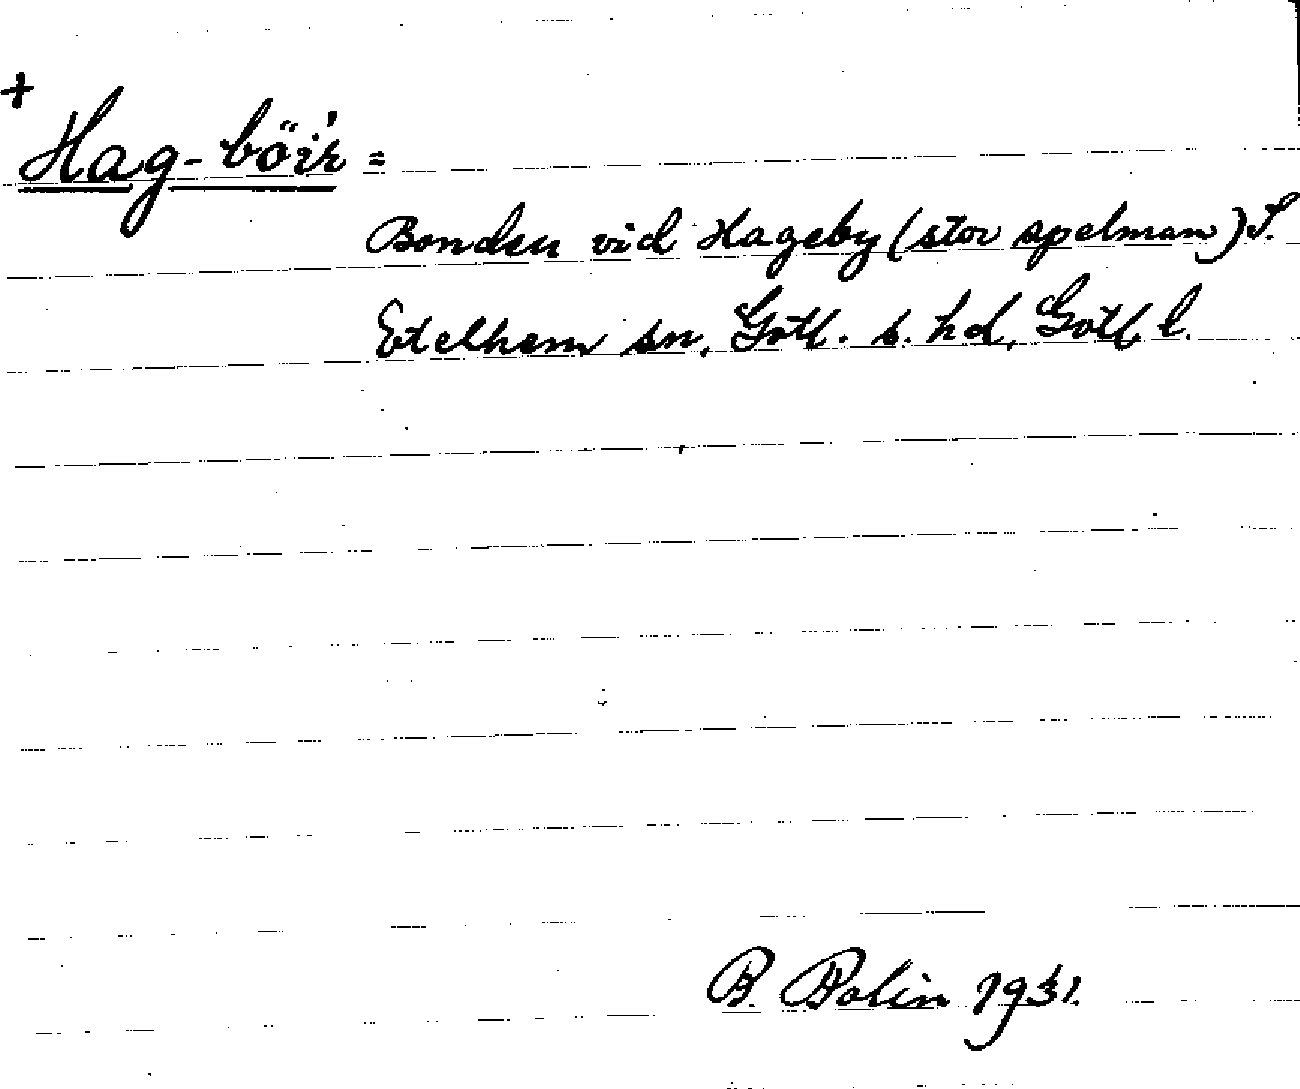 +
Hag-böir =
Bonden vid Hageby (stor spelman) S.
Etelhem sn, Gotl. s. hd, Gotl l.
B. Bolin 1931.